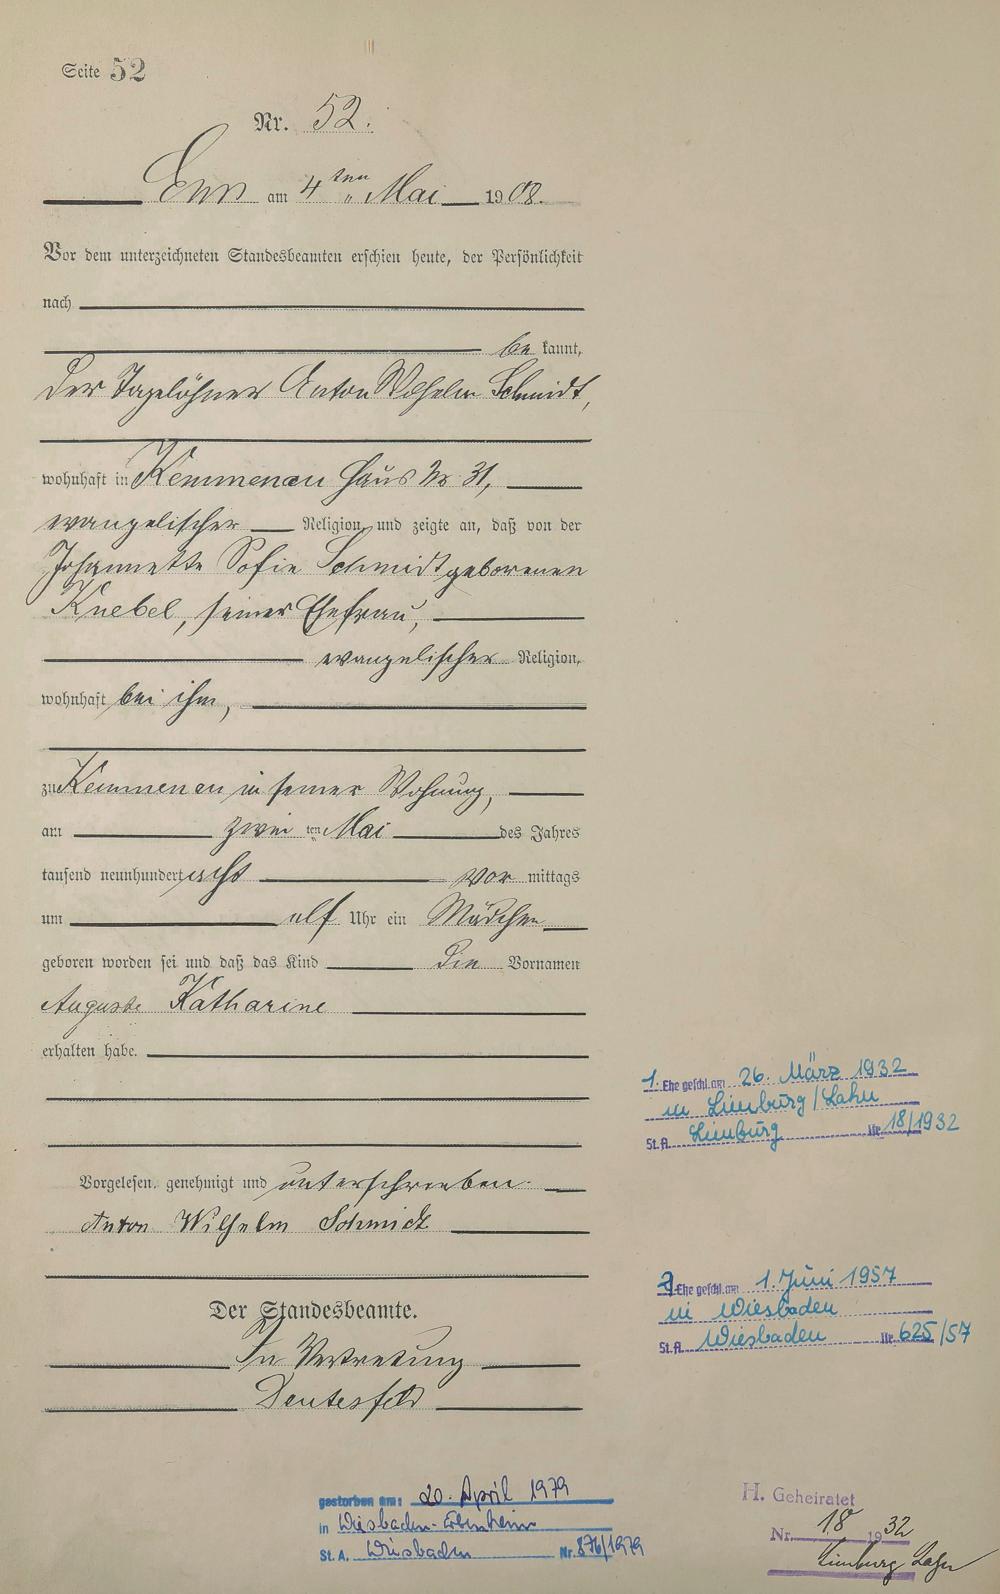 Seite 52
Nr. 52.
Ems am 4ten Mai 1908.
Vor dem unterzeichneten Standesbeamten erschien heute, der Persönlichkeit
nach
be kannt,
der Tagelöhner Anton Wilhelm Schmidt,
wohnhaft in Kemmenau Haus No 31,
evangelischer Religion, und zeigte an, daß von der
Johannette Sofie Schmidt geborenen
Knebel, seiner Ehefrau,
evangelischer Religion,
wohnhaft bei ihm,
zu Kemmenau in seiner Wohnung,
am zwei ten Mai des Jahres
tausend neunhundert acht vor mittags
um elf Uhr ein Mädchen
geboren worden sei und daß das Kind die Vornamen
Auguste Katharine
erhalten habe.
Vorgelesen, genehmigt und unterschrieben.
Anton Wilhelm Schmidt
Der Standesbeamte.
In Vertretung
1. Ehe geschl. am 26. März 1932
in Limburg/Lahn
St.A. Limburg Nr. 18/1932
2. Ehe geschl. am 1. Juni 1957
in Wiesbaden
St.A. Wiesbaden Nr. 625/57
gestorben am: 20. April 1979
in Wiesbaden-Erbenheim
St. A. Wiesbaden Nr. 876/1979
H. Geheiratet
Nr. 18 1932
Limburg Lahn